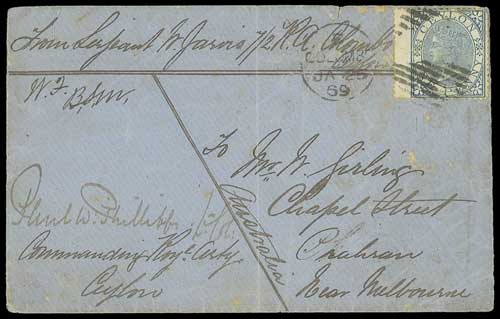 From Sergeant W. Jarvis 7/2 R.A. Colombo
Ceylon
CEYLON
COLOMBO
JA 25
69
W. J.
To
Mr. W. Girling
Chapel Street
Prahran
Near Melbourne
Australia
Phillipps
Commanding Royl. Arty.
Ceylon